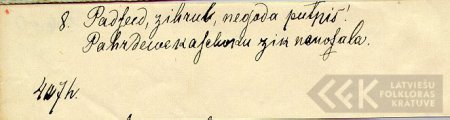 8. Padseed, zihrul, negoda putnis!
Pahrdewekaschoku zik nenosala.
407h.
LATVIEŠU
FOLKLORAS
KRĀTUVE